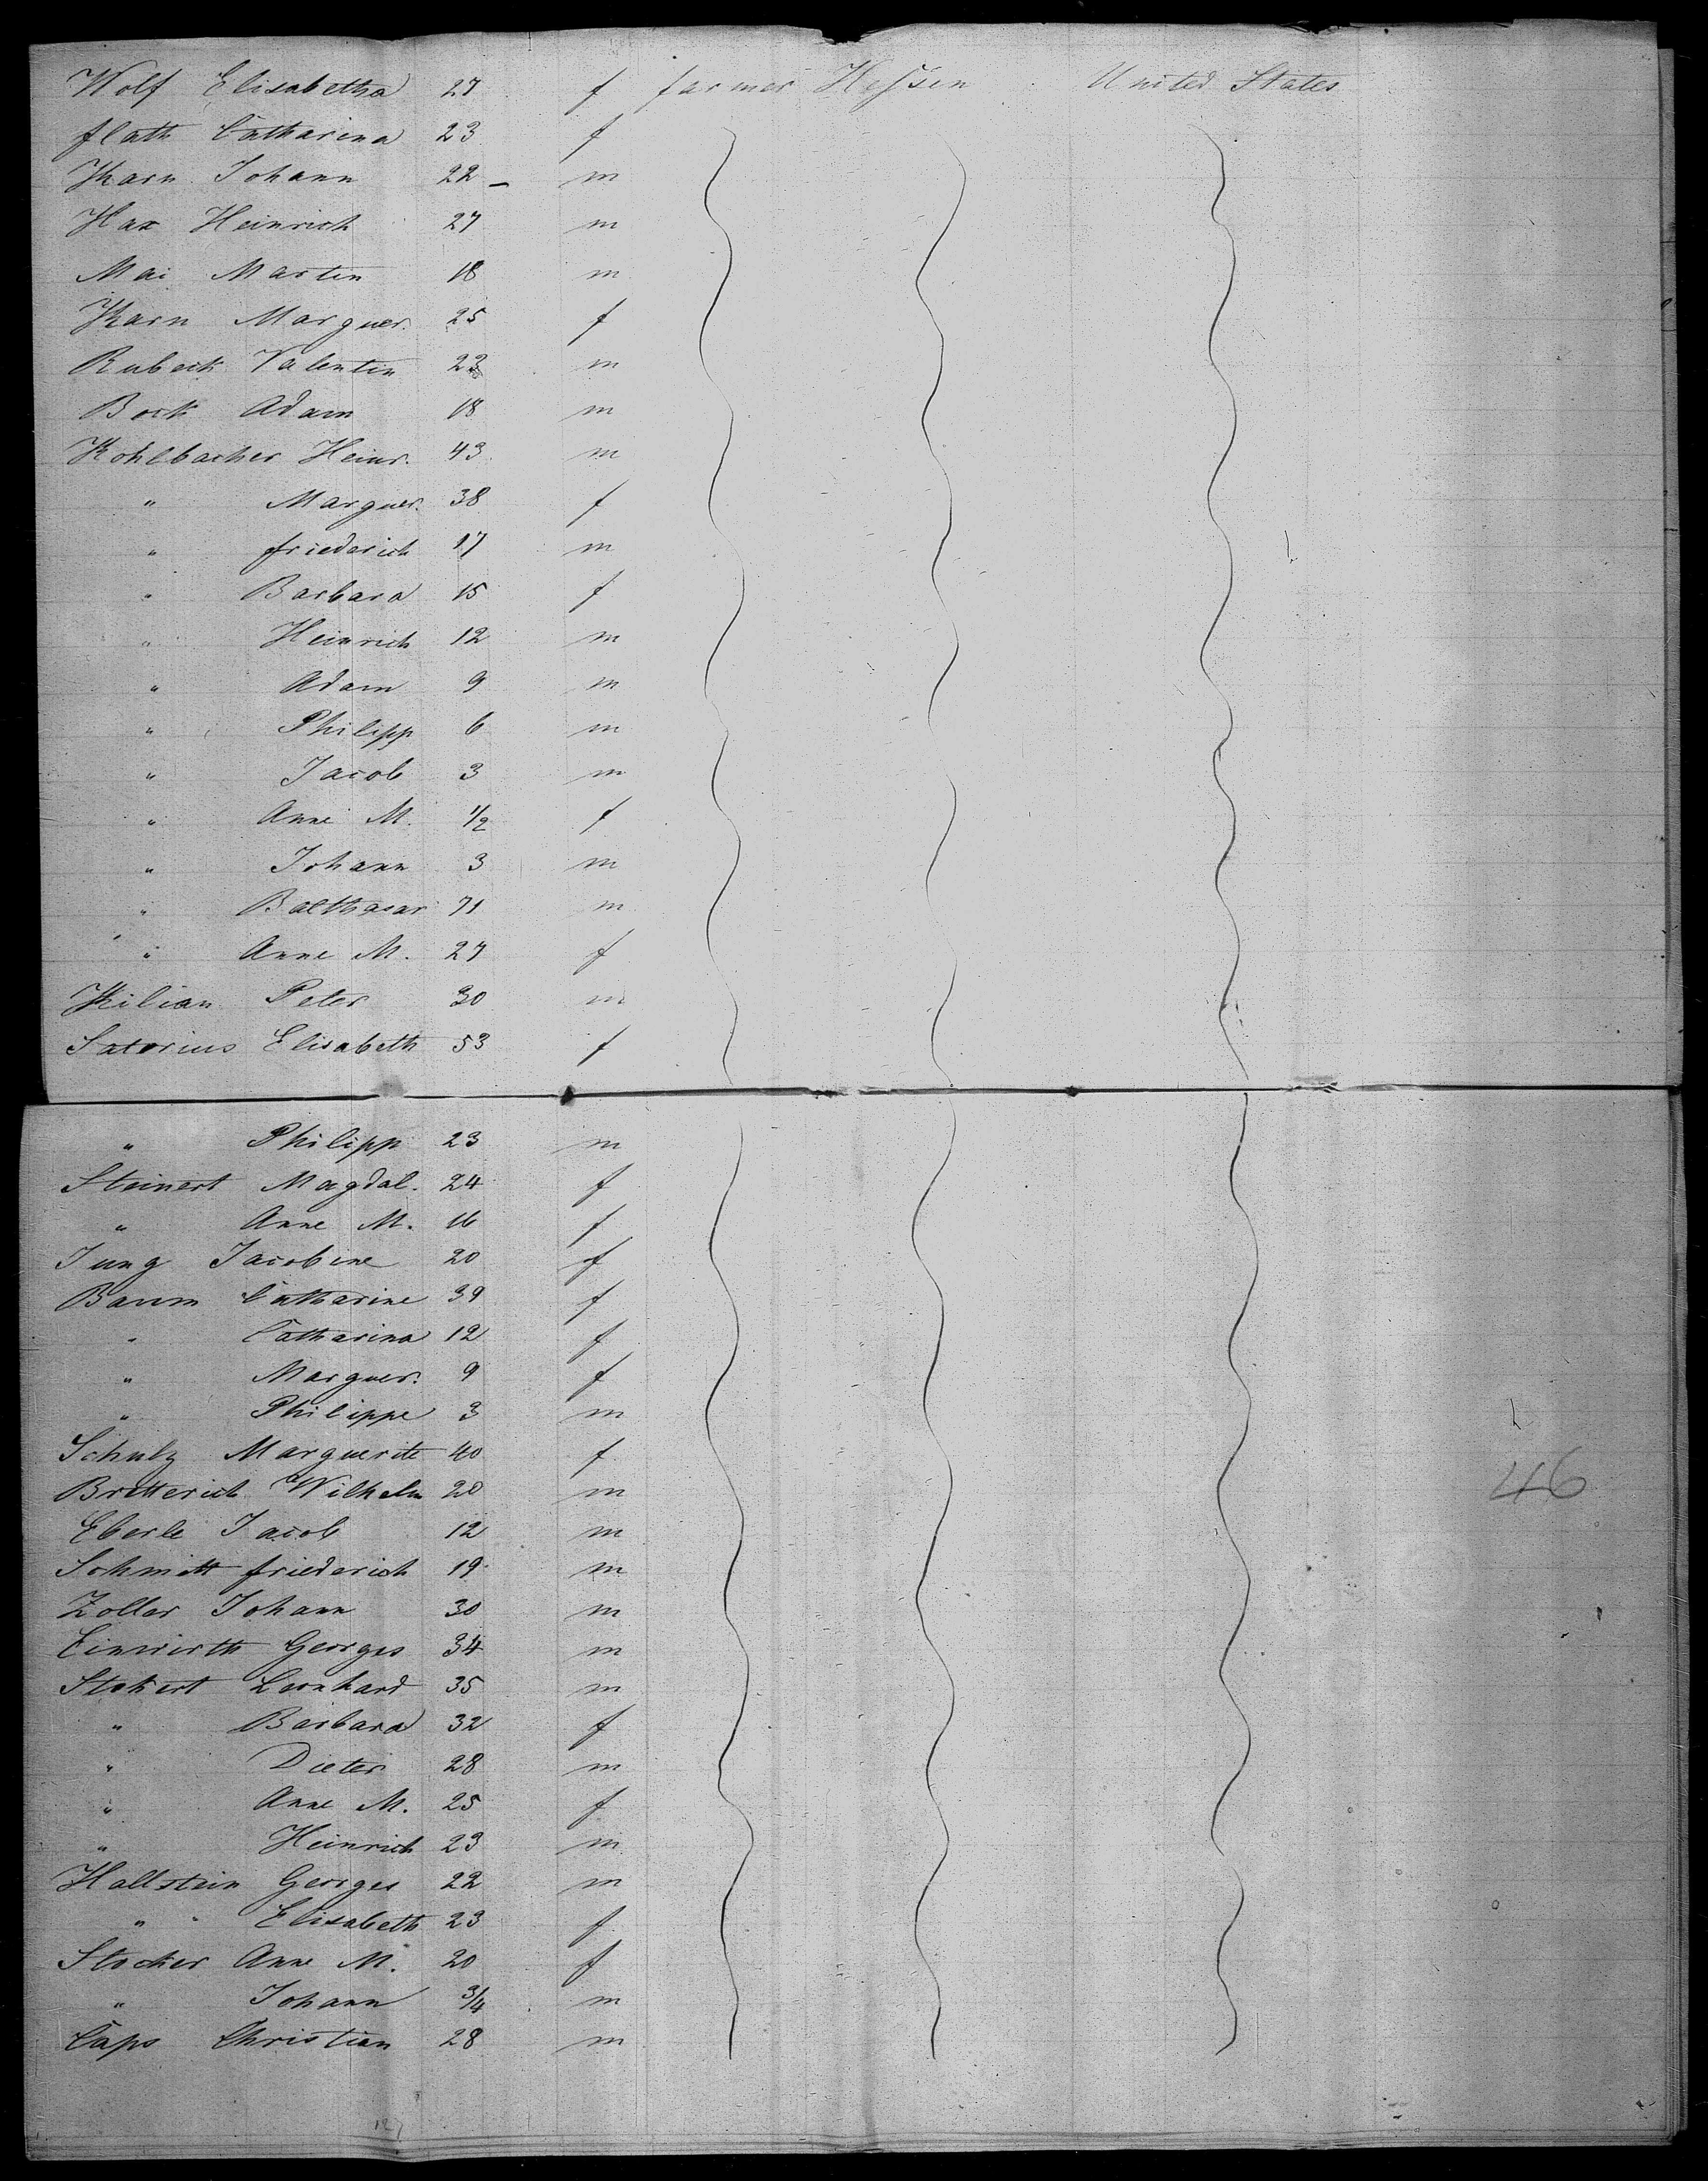 Wolf Elisabetha 27 f farmer Hessen United States
flath Catharina 23 f
Karn Johann 22 – m
Hax Heinrich 27 m
Mai Martin 18 m
Karn Marguer. 25 f
Rubeck Valentin 23 m
Bock Adam 18 m
Kohlbacher Heinr. 43 m
" Marguer. 38 f
" friederich 17 m
" Barbara 15 f
" Heinrich 12 m
" Adam 9 m
" Philipp 6 m
" Jacob 3 m
" Anne M. 1/2 f
" Johann 3 m
" Balthasar 71 m
" Anne M. 27 f
Kilian Peter 30 m
Satorius Elisabeth 53 f
" Philipp 23 m
Steinert Magdal. 24 f
" Anne M. 16 f
Jung Jacobine 20 f
Baum Catharine 39 f
" Catharina 12 f
" Marguer. 9 f
" Philippe 3 m
Schulz Marguerite 40 f
Bretterich Wilhelm 20 m
46
Eberle Jacob 12 m
Schmitt friederich 19 m
Zoller Johann 30 m
Einwirth Georges 34 m
Stokert Leonhard 35 m
" Barbara 32 f
" Dieter 28 m
" Anne M. 25 f
" Heinrich 23 m
Hallstein Georges 22 m
" " Elisabeth 23 f
Stocker Anne M. 20 f
" Johann 3/4 m
Caps Christian 28 m